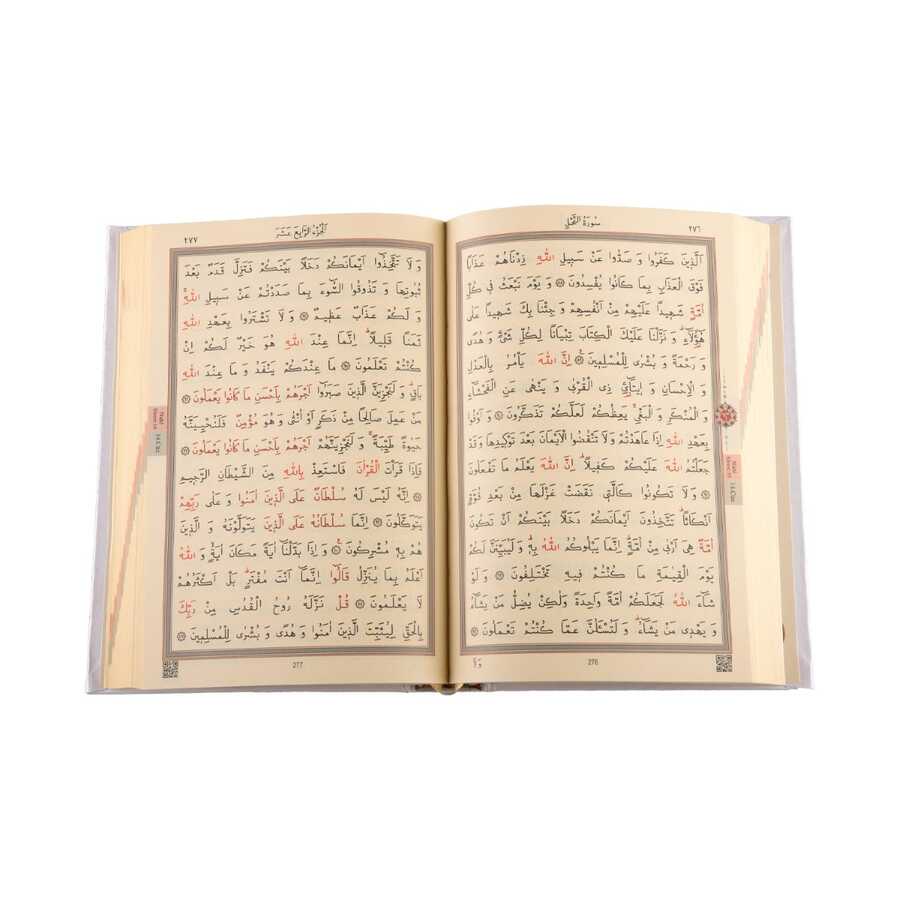 سُورَةُ النَّحْلِ
٢٧٦
اَلَّذ۪ينَ كَفَرُوا وَ صَدُّوا عَنْ سَب۪يلِ اللّٰهِ زِدْنَاهُمْ عَذَابًا
فَوْقَ الْعَذَابِ بِمَا كَانُوا يُفْسِدُونَ ﴿٨٨﴾ وَ يَوْمَ نَبْعَثُ ف۪ي كُلِّ
اُمَّةٍ شَه۪يدًا عَلَيْهِمْ مِنْ اَنْفُسِهِمْ وَ جِئْنَا بِكَ شَه۪يدًا عَلٰى
هٰٓؤُلَٓاءِۜ وَ نَزَّلْنَا عَلَيْكَ الْكِتَابَ تِبْيَانًا لِكُلِّ شَيْءٍ وَ هُدًى
وَ رَحْمَةً وَ بُشْرٰى لِلْمُسْلِم۪ينَ ﴿٨٩﴾ اِنَّ اللّٰهَ يَأْمُرُ بِالْعَدْلِ
وَ الْاِحْسَانِ وَ ا۪يتَٓائِ ذِي الْقُرْبٰى وَ يَنْهٰى عَنِ الْفَحْشَٓاءِ
وَ الْمُنْكَرِ وَ الْبَغْيِۚ يَعِظُكُمْ لَعَلَّكُمْ تَذَكَّرُونَ ﴿٩٠﴾ وَ اَوْفُوا
بِعَهْدِ اللّٰهِ اِذَا عَاهَدْتُمْ وَ لَا تَنْقُضُوا الْاَيْمَانَ بَعْدَ تَوْك۪يدِهَا وَ قَدْ
جَعَلْتُمُ اللّٰهَ عَلَيْكُمْ كَف۪يلًاۜ اِنَّ اللّٰهَ يَعْلَمُ مَا تَفْعَلُونَ
﴿٩١﴾ وَ لَا تَكُونُوا كَالَّت۪ي نَقَضَتْ غَزْلَهَا مِنْ بَعْدِ قُوَّةٍ
اَنْكَاثًاۜ تَتَّخِذُونَ اَيْمَانَكُمْ دَخَلًا بَيْنَكُمْ اَنْ تَكُونَ
اُمَّةٌ هِيَ اَرْبٰى مِنْ اُمَّةٍۜ اِنَّمَا يَبْلُوكُمُ اللّٰهُ بِه۪ۜ وَ لَيُبَيِّنَنَّ لَكُمْ
يَوْمَ الْقِيٰمَةِ مَا كُنْتُمْ ف۪يهِ تَخْتَلِفُونَ ﴿٩٢﴾ وَ لَوْ
شَٓاءَ اللّٰهُ لَجَعَلَكُمْ اُمَّةً وَاحِدَةً وَلٰكِنْ يُضِلُّ مَنْ يَشَٓاءُ
وَ يَهْد۪ي مَنْ يَشَٓاءُۜ وَ لَتُسْـَٔلُنَّ عَمَّا كُنْتُمْ تَعْمَلُونَ ﴿٩٣﴾
276
وَلَا
Nahl
14.Cüz
اَلْجُزْءُ الرَّابِعَ عَشَرَ
٢٧٧
وَ لَا تَتَّخِذُٓوا اَيْمَانَكُمْ دَخَلًا بَيْنَكُمْ فَتَزِلَّ قَدَمٌ بَعْدَ
ثُبُوتِهَا وَ تَذُوقُوا السُّٓوءَ بِمَا صَدَدْتُمْ عَنْ سَب۪يلِ اللّٰهِۚ
وَ لَكُمْ عَذَابٌ عَظ۪يمٌ ﴿٩٤﴾ وَ لَا تَشْتَرُوا بِعَهْدِ اللّٰهِ
ثَمَنًا قَل۪يلًاۜ اِنَّمَا عِنْدَ اللّٰهِ هُوَ خَيْرٌ لَكُمْ اِنْ
كُنْتُمْ تَعْلَمُونَ ﴿٩٥﴾ مَا عِنْدَكُمْ يَنْفَدُ وَ مَا عِنْدَ اللّٰهِ
بَاقٍۜ وَ لَنَجْزِيَنَّ الَّذ۪ينَ صَبَرُٓوا اَجْرَهُمْ بِاَحْسَنِ مَا كَانُوا يَعْمَلُونَ
﴿٩٦﴾ مَنْ عَمِلَ صَالِحًا مِنْ ذَكَرٍ اَوْ اُنْثٰى وَ هُوَ مُؤْمِنٌ فَلَنُحْيِيَنَّهُ
حَيٰوةً طَيِّبَةًۚ وَ لَنَجْزِيَنَّهُمْ اَجْرَهُمْ بِاَحْسَنِ مَا كَانُوا يَعْمَلُونَ ﴿٩٧﴾
فَاِذَا قَرَأْتَ الْقُرْاٰنَ فَاسْتَعِذْ بِاللّٰهِ مِنَ الشَّيْطَانِ الرَّج۪يمِ
﴿٩٨﴾ اِنَّهُ لَيْسَ لَهُ سُلْطَانٌ عَلَى الَّذ۪ينَ اٰمَنُوا وَ عَلٰى رَبِّهِمْ
يَتَوَكَّلُونَ ﴿٩٩﴾ اِنَّمَا سُلْطَانُهُ عَلَى الَّذ۪ينَ يَتَوَلَّوْنَهُ وَ الَّذ۪ينَ
هُمْ بِه۪ مُشْرِكُونَ ﴿١٠٠﴾ وَ اِذَا بَدَّلْنَٓا اٰيَةً مَكَانَ اٰيَةٍۙ وَ اللّٰهُ
اَعْلَمُ بِمَا يُنَزِّلُ قَالُٓوا اِنَّمَٓا اَنْتَ مُفْتَرٍۜ بَلْ اَكْثَرُهُمْ
لَا يَعْلَمُونَ ﴿١٠١﴾ قُلْ نَزَّلَهُ رُوحُ الْقُدُسِ مِنْ رَبِّكَ
بِالْحَقِّ لِيُثَبِّتَ الَّذ۪ينَ اٰمَنُوا وَ هُدًى وَ بُشْرٰى لِلْمُسْلِم۪ينَ ﴿١٠٢﴾
277
Nahl
14.Cüz